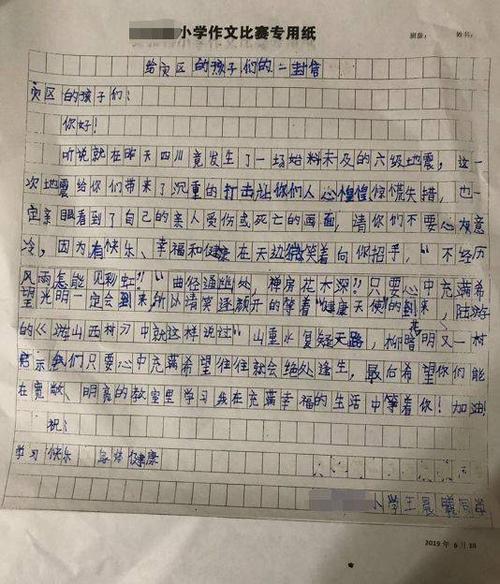 小学作文比赛专用纸
班级: 姓名:
给灾区的孩子们的一封信
灾区的孩子们:
你好!
听说就在昨天四川竟发生了一场始料未及的六级地震,这一
次地震给你们带来了沉重的打击让你们人心惶惶惊慌失措,也一
定亲眼看到了自己的亲人受伤或死亡的画面,请你们不要心灰意
冷,因为有快乐、幸福和健康在天边微笑着向你招手,“不经历
风雨怎能见彩虹!”“曲径通幽处,禅房花木深!”只要心中充满希
望光明一定会到来所以请笑逐颜开的等着“健康天使”的到来,陆游
的《游山西村》中就这样说过“山重水复疑无路,柳暗花明又一村
启示我们只要心中充满希望往往就会绝处逢生,最后希望你们能
在宽敞、明亮的教室里学习我在充满幸福的生活中等着你!加油!
祝:
学习快乐 身体健康
小学王晨曦同学
2019年6月18